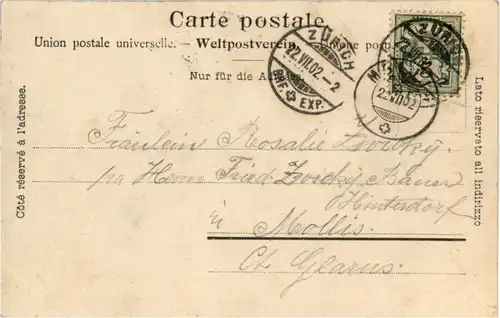 Carte postale.
Union postale universelle. — Weltpostverein. — post
Nur für die Adresse.
ZÜRICH
27.VII.02.–2
BRF. EXP.
ZÜRI
22 VII 02
Côté réservé à l'adresse.
Lato riservato all indirizzo
Fräulein Rosalie Zwicky.
pa Herrn Fried. Zwicky Bauer
Hinterdorf
in
Mollis
Ct. Glarus.